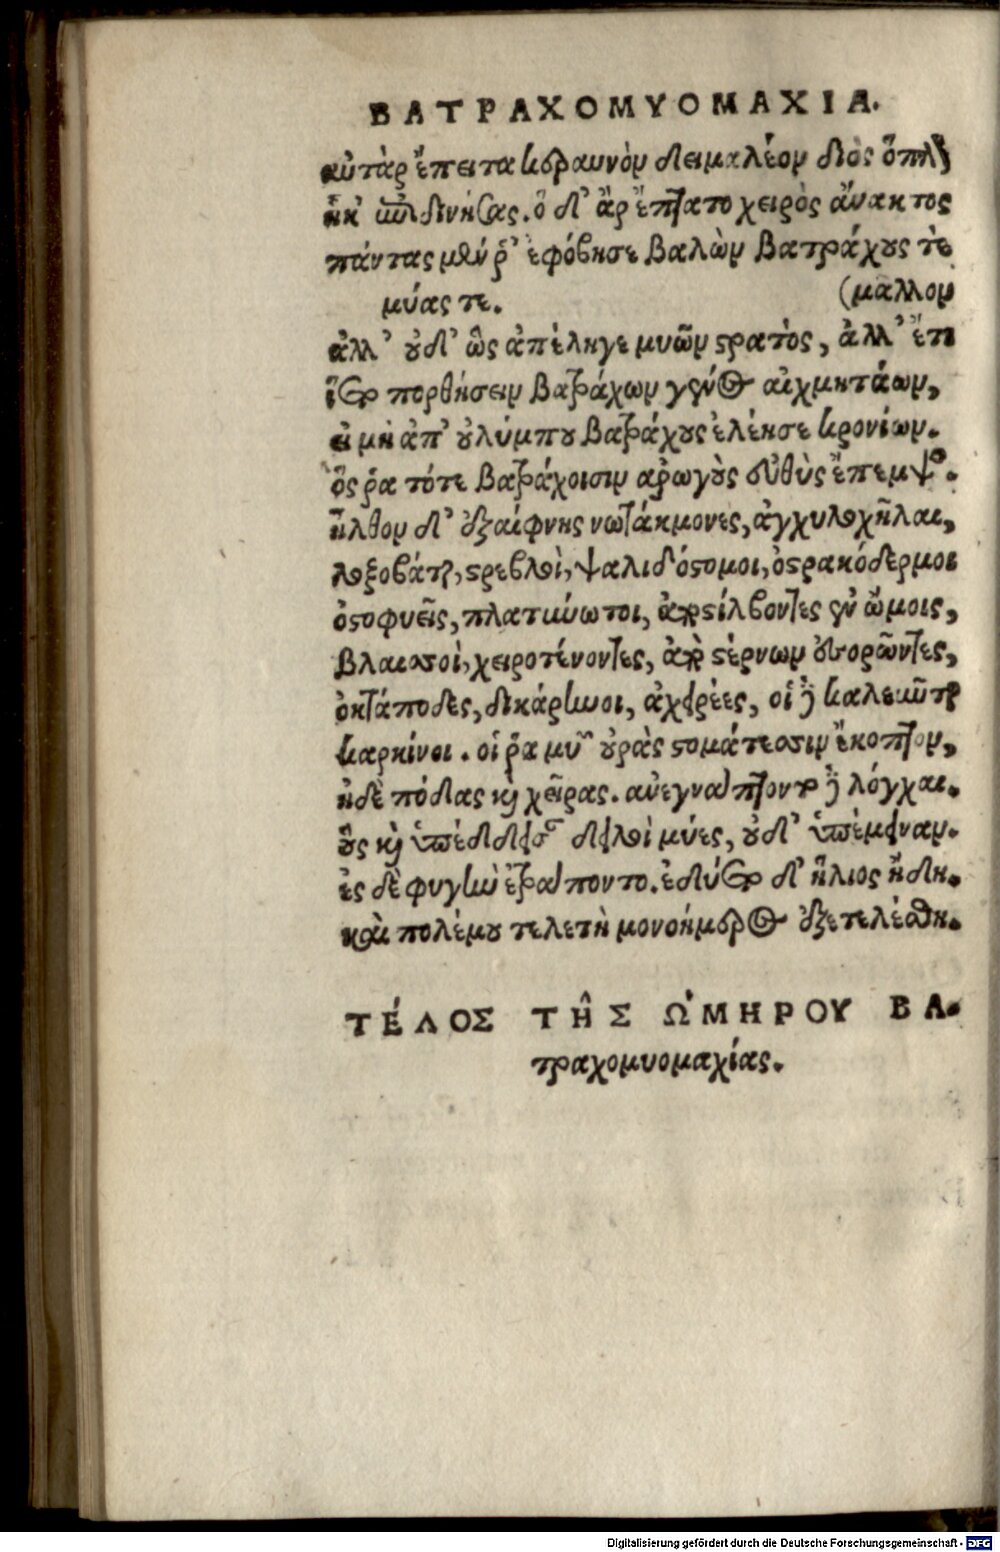 ΒΑΤΡΑΧΟΜΥΟΜΑΧΙΑ.
αὐτὰρ ἔπειτα κεραυνὸν δειμαλέον διὸς ὅπλον
ἧκ' ἐπιδινήσας. ὁ δ' ἂρ ἔπτατο χειρὸς ἄνακτος
πάντας μέν ῥ' ἐφόβησε βαλὼν βατράχους τὲ
μύας τε. (μαλλον
ἀλλ' οὐδ' ὣς ἀπέληγε μυῶν στρατὸς, ἀλλ' ἔτι
ἵετο πορθήσειν βατράχων γένος αἰχμητάων,
εἰ μὴ ἀπ' οὐλύμπου βατράχους ἐλέησε κρονίων.
ὅς ῥα τότε βατράχοισιν ἀρωγοὺς εὐθὺς ἔπεμψεν.
ἦλθον δ' ἐξαίφνης νωτάκμονες, ἀγχυλοχῆλαι,
λοξοβάται, στρεβλοὶ, ψαλιδόστομοι, ὀστρακόδερμοι
ὀστοφυεῖς, πλατύνωτοι, ἀποστίλβοντες ἐν ὤμοις,
βλαισοὶ, χειροτένοντες, ἀπὸ στέρνων ἐσορῶντες,
ὀκτάποδες, δικάρηνοι, ἀχειρέες, οἱ δὲ καλεῦνται
καρκίνοι. οἵ ῥα μυῶν οὐρὰς στομάτεσσιν ἔκοπτον,
ἠδὲ πόδας καὶ χεῖρας. ἀνεγνάμπτοντο δὲ λόγχαι.
οὓς καὶ ὑπέδδεισαν δειλοὶ μύες, οὐδ' ὑπέμειναν.
ἐς δὲ φυγὴν ἐτράποντο. ἐδύετο δ' ἥλιος ἤδη.
καὶ πολέμου τελετὴ μονοήμερος ἐξετελέσθη.
ΤΈΛΟΣ ΤΗ͂Σ ὩΜΗΡΟΥ ΒΑ.
τραχομυομαχίας.
Digitalisierung gefördert durch die Deutsche Forschungsgemeinschaft - DFG